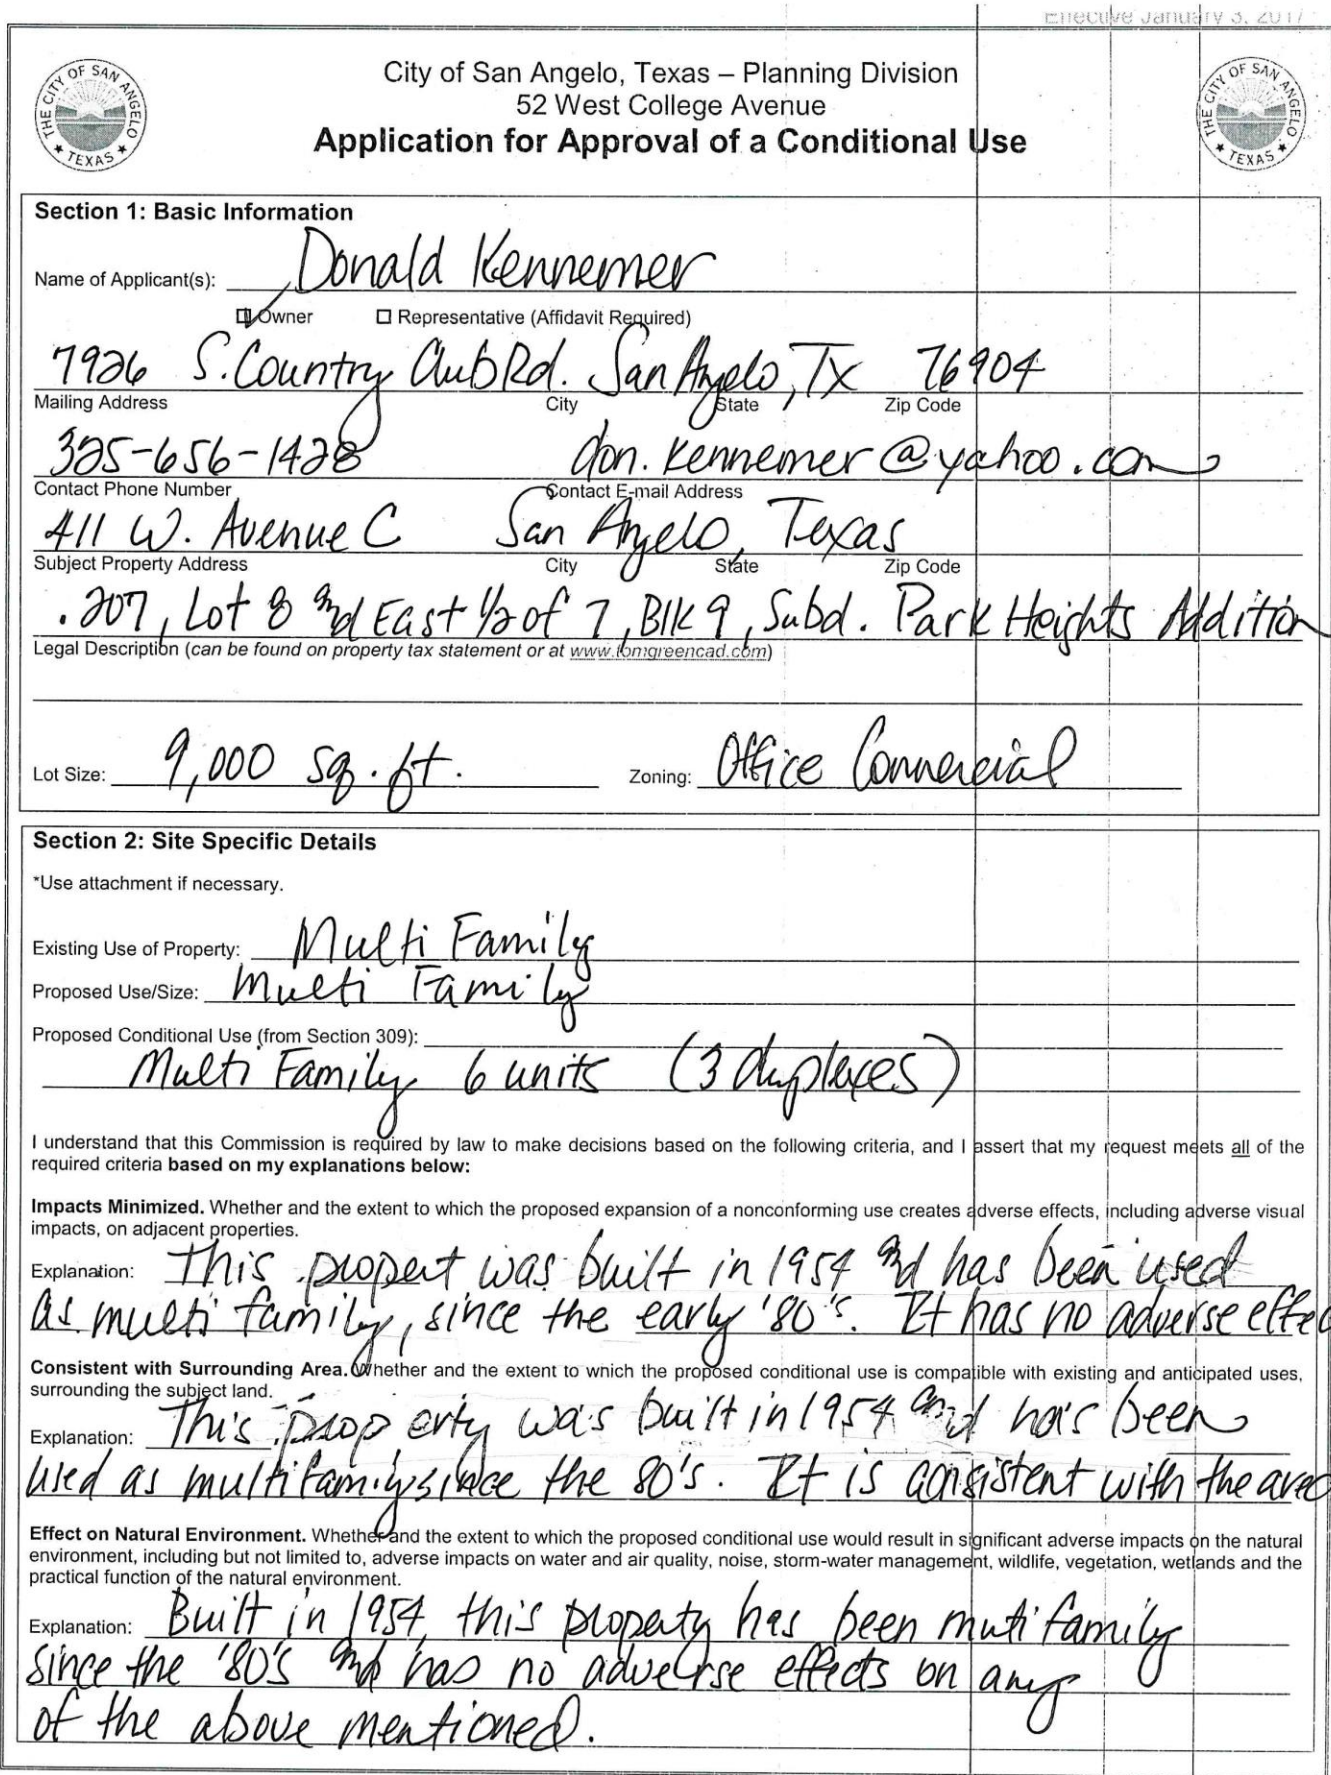 Effective January 3, 2017
THE CITY OF SAN ANGELO
★ TEXAS ★
City of San Angelo, Texas – Planning Division
52 West College Avenue
Application for Approval of a Conditional Use
THE CITY OF SAN ANGELO
★ TEXAS ★
Section 1: Basic Information
Name of Applicant(s): Donald Kennemer
Owner Representative (Affidavit Required)
7926 S. Country Club Rd. San Angelo, TX 76904
Mailing Address City State Zip Code
325-656-1428 don.kennemer@yahoo.com
Contact Phone Number Contact E-mail Address
411 W. Avenue C San Angelo, Texas
Subject Property Address City State Zip Code
.207, Lot 8 and East 1/2 of 7, Blk 9, Subd. Park Heights Addition
Legal Description (can be found on property tax statement or at www.tomgreencad.com)
Lot Size: 9,000 sq. ft. Zoning: Office Commercial
Section 2: Site Specific Details
*Use attachment if necessary.
Existing Use of Property: Multi Family
Proposed Use/Size: Multi Family
Proposed Conditional Use (from Section 309):
Multi Family 6 units (3 duplexes)
I understand that this Commission is required by law to make decisions based on the following criteria, and I assert that my request meets all of the
required criteria based on my explanations below:
Impacts Minimized. Whether and the extent to which the proposed expansion of a nonconforming use creates adverse effects, including adverse visual
impacts, on adjacent properties.
Explanation: This propert was built in 1954 and has been used
as multi family, since the early '80's. It has no adverse effec
Consistent with Surrounding Area. Whether and the extent to which the proposed conditional use is compatible with existing and anticipated uses,
surrounding the subject land.
Explanation: This property was built in 1954 and has been
used as multifamily since the 80's. It is consistent with the area
Effect on Natural Environment. Whether and the extent to which the proposed conditional use would result in significant adverse impacts on the natural
environment, including but not limited to, adverse impacts on water and air quality, noise, storm-water management, wildlife, vegetation, wetlands and the
practical function of the natural environment.
Explanation: Built in 1954, this property has been muti family
since the '80's and has no adverse effects on any
of the above mentioned.